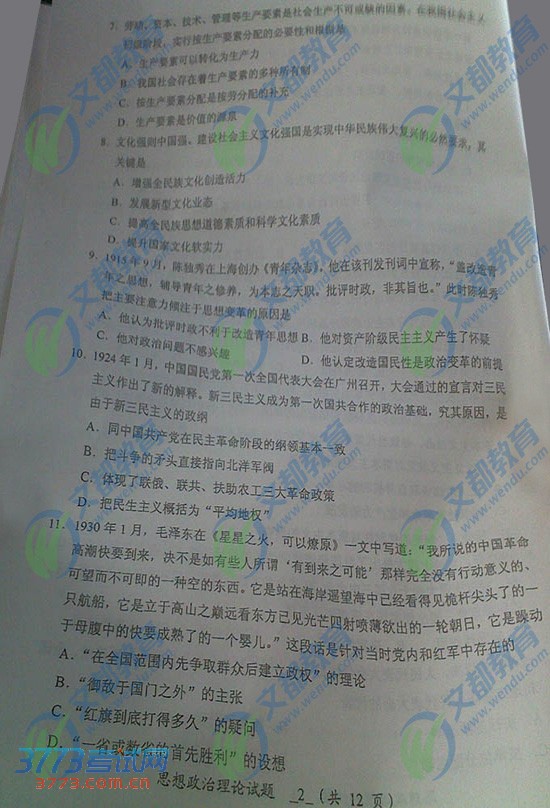 7. 劳动、资本、技术、管理等生产要素是社会生产不可或缺的因素。在我国社会主义
初级阶段，实行按生产要素分配的必要性和根据是
A. 生产要素可以转化为生产力
B. 我国社会存在着生产要素的多种所有制
C. 按生产要素分配是按劳分配的补充
D. 生产要素是价值的源泉
8. 文化强则中国强。建设社会主义文化强国是实现中华民族伟大复兴的必然要求，其
关键是
A. 增强全民族文化创造活力
B. 发展新型文化业态
C. 提高全民族思想道德素质和科学文化素质
D. 提升国家文化软实力
9. 1915年9月，陈独秀在上海创办《青年杂志》，他在该刊发刊词中宣称，“盖改造青
年之思想，辅导青年之修养，为本志之天职。批评时政，非其旨也。”此时陈独秀
把主要注意力倾注于思想变革的原因是
A. 他认为批评时政不利于改造青年思想 B. 他对资产阶级民主主义产生了怀疑
C. 他对政治问题不感兴趣 D. 他认定改造国民性是政治变革的前提
10. 1924年1月，中国国民党第一次全国代表大会在广州召开，大会通过的宣言对三民
主义作出了新的解释。新三民主义成为第一次国共合作的政治基础，究其原因，是
由于新三民主义的政纲
A. 同中国共产党在民主革命阶段的纲领基本一致
B. 把斗争的矛头直接指向北洋军阀
C. 体现了联俄、联共、扶助农工三大革命政策
D. 把民生主义概括为“平均地权”
11. 1930年1月，毛泽东在《星星之火，可以燎原》一文中写道：“我所说的中国革命
高潮快要到来，决不是如有些人所谓‘有到来之可能’那样完全没有行动意义的、
可望而不可即的一种空的东西。它是站在海岸遥望海中已经看得见桅杆尖头了的一
只航船，它是立于高山之巅远看东方已见光芒四射喷薄欲出的一轮朝日，它是躁动
于母腹中的快要成熟了的一个婴儿。”这段话是针对当时党内和红军中存在的
A. “在全国范围内先争取群众后建立政权”的理论
B. “御敌于国门之外”的主张
C. “红旗到底打得多久”的疑问
D. “一省或数省的首先胜利”的设想
思想政治理论试题 _2_（共 12 页）
3773考试网
www.3773.com.cn
文都教育
www.wendu.com